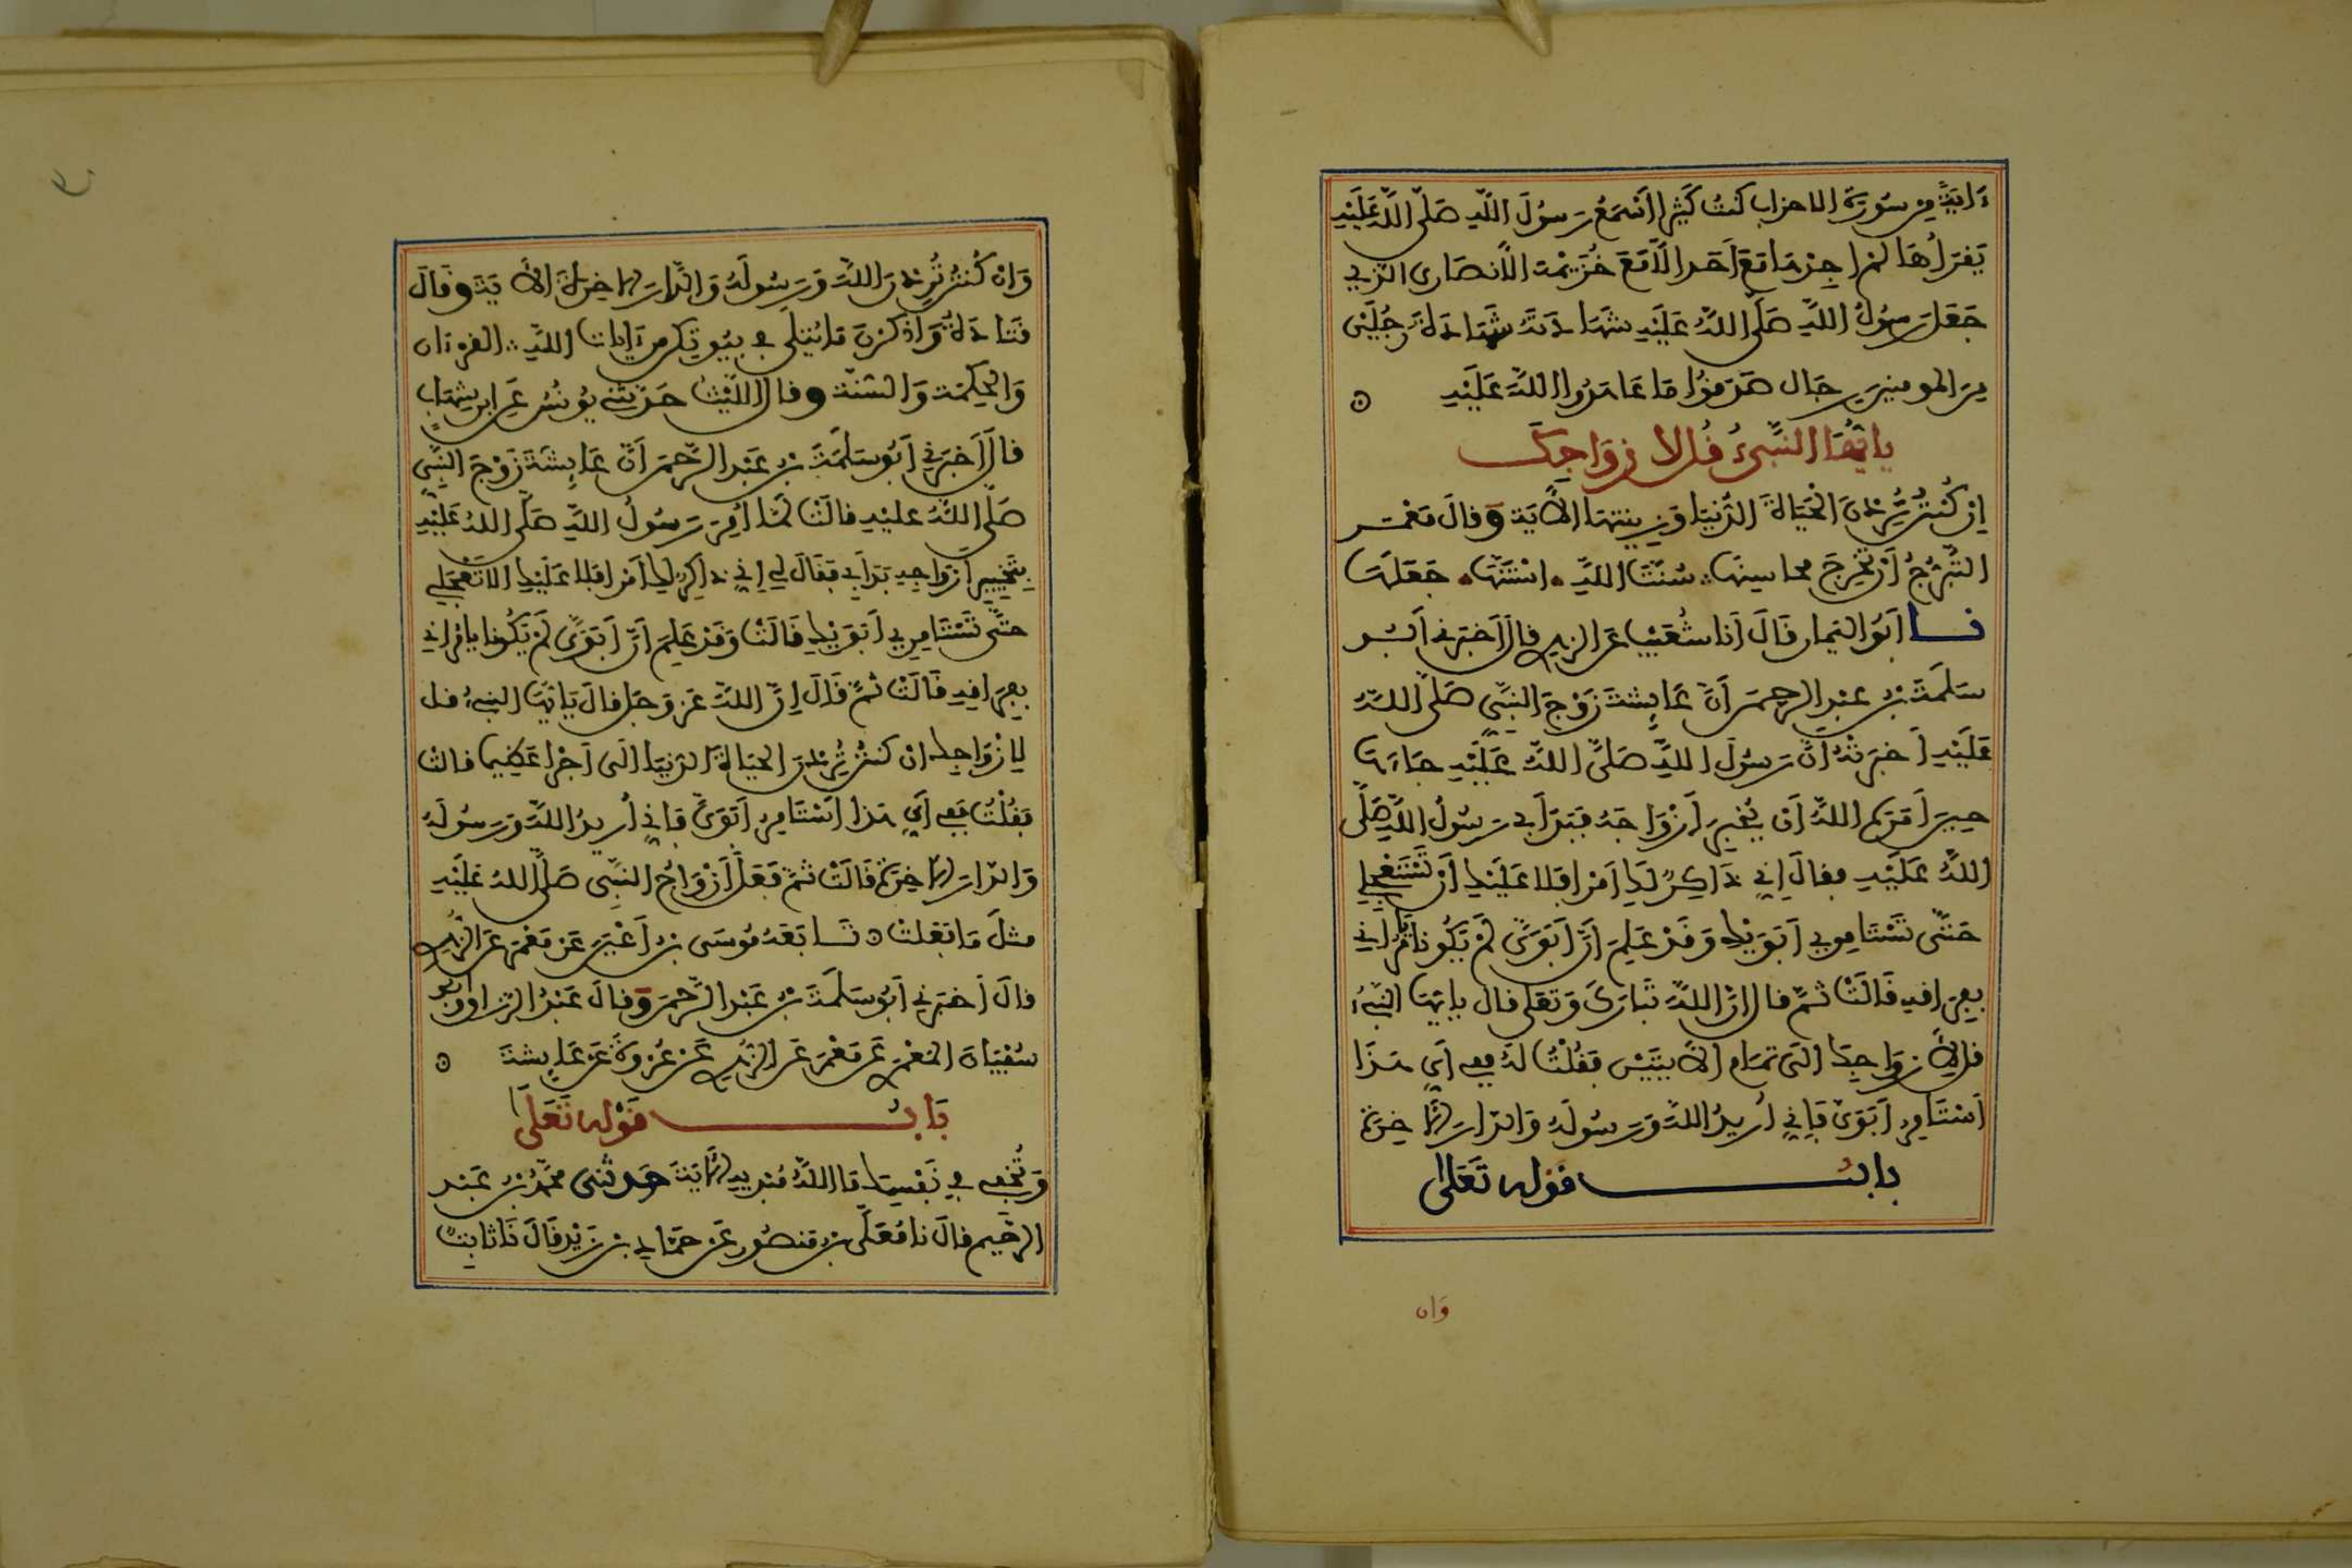 ءاية من سورة الاحزاب كنت كثيرا اسمع رسول الله صلى الله عليه
يقرأها لم اجدها مع أحد الا مع خزيمة الأنصاري الذي
جعل رسول الله صلى الله عليه شهادته شهادة رجلين
من المومنين رجال صدقوا ما عاهدوا الله عليه
يا أيها النبيء قل لازواجك
إن كنتن تردن الحياة الدنيا وزينتها الآية وقال معمر
التبرج أن تخرج محاسنها سنة الله استنها جعلها
نا أبو اليمان قال أنا شعيب عن الزهري قال أخبرني أبو
سلمة بن عبد الرحمن أن عايشة زوج النبي صلى الله
عليه أخبرته ان رسول الله صلى الله عليه جاءها
حين أمره الله أن يخير أزواجه فبدأ بي رسول الله صلى
الله عليه فقال إني ذاكر لك أمرا فلا عليك أن تستعجلي
حتى تستامري أبويك وقد علم أن أبوي لم يكونا يأمراني
بفراقه قالت ثم قال إن الله تبارك وتعلى قال يايها النبيء
قل لأزواجك الى تمام الآيتين فقلت له ففي أي هذا
أستامر أبوي فإني أريد الله ورسوله والدار الآخرة
باب قوله تعلى
وان
وان كنتن تردن الله ورسوله والدار الاخرة الآية وقال
قتادة واذكرن ما يتلى في بيوتكن من ءايات الله القرءان
والحكمة والسنة وقال الليث حدثني يونس عن ابن شهاب
قال أخبرني أبو سلمة بن عبد الرحمن أن عايشة زوج النبي
صلى الله عليه قالت لما أمر رسول الله صلى الله عليه
بتخيير أزواجه بدأ بي فقال لي إني ذاكر لك أمرا فلا عليك الا تعجلي
حتى تستامري أبويك قالت وقد علم أن أبوي لم يكونا يامراني
بفراقه قالت ثم قال إن الله عز وجل قال يا أيها النبيء قل
لازواجك ان كنتن تردن الحياة الدنيا الى أجرا عظيما قالت
فقلت ففي أي هذا أستامر أبوي فإني أريد الله ورسوله
والدار الاخرة قالت ثم فعل أزواج النبي صلى الله عليه
مثل ما فعلت تابعه موسى بن أعين عن معمر عن الزهري
قال أخبرني أبو سلمة بن عبد الرحمن وقال عبد الرزاق وأبو
سفيان المعمري عن معمر عن الزهري عن عروة عن عايشة
باب قوله تعلى
وتخفي في نفسك ما الله مبديه الآية حدثنى محمد بن عبد
الرحيم قال نا معلى بن منصور عن حماد بن زيد قال نا ثابت